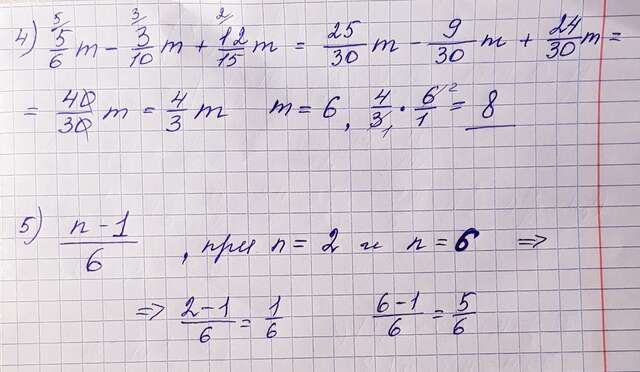 4) 5/6 m - 3/10 m + 12/15 m = 25/30 m - 9/30 m + 24/30 m =
= 40/30 m = 4/3 m m = 6, 4/3 · 6/1 = 8
5) n-1/6, при n = 2 и n = 6 =>
=> 2-1/6 = 1/6 6-1/6 = 5/6